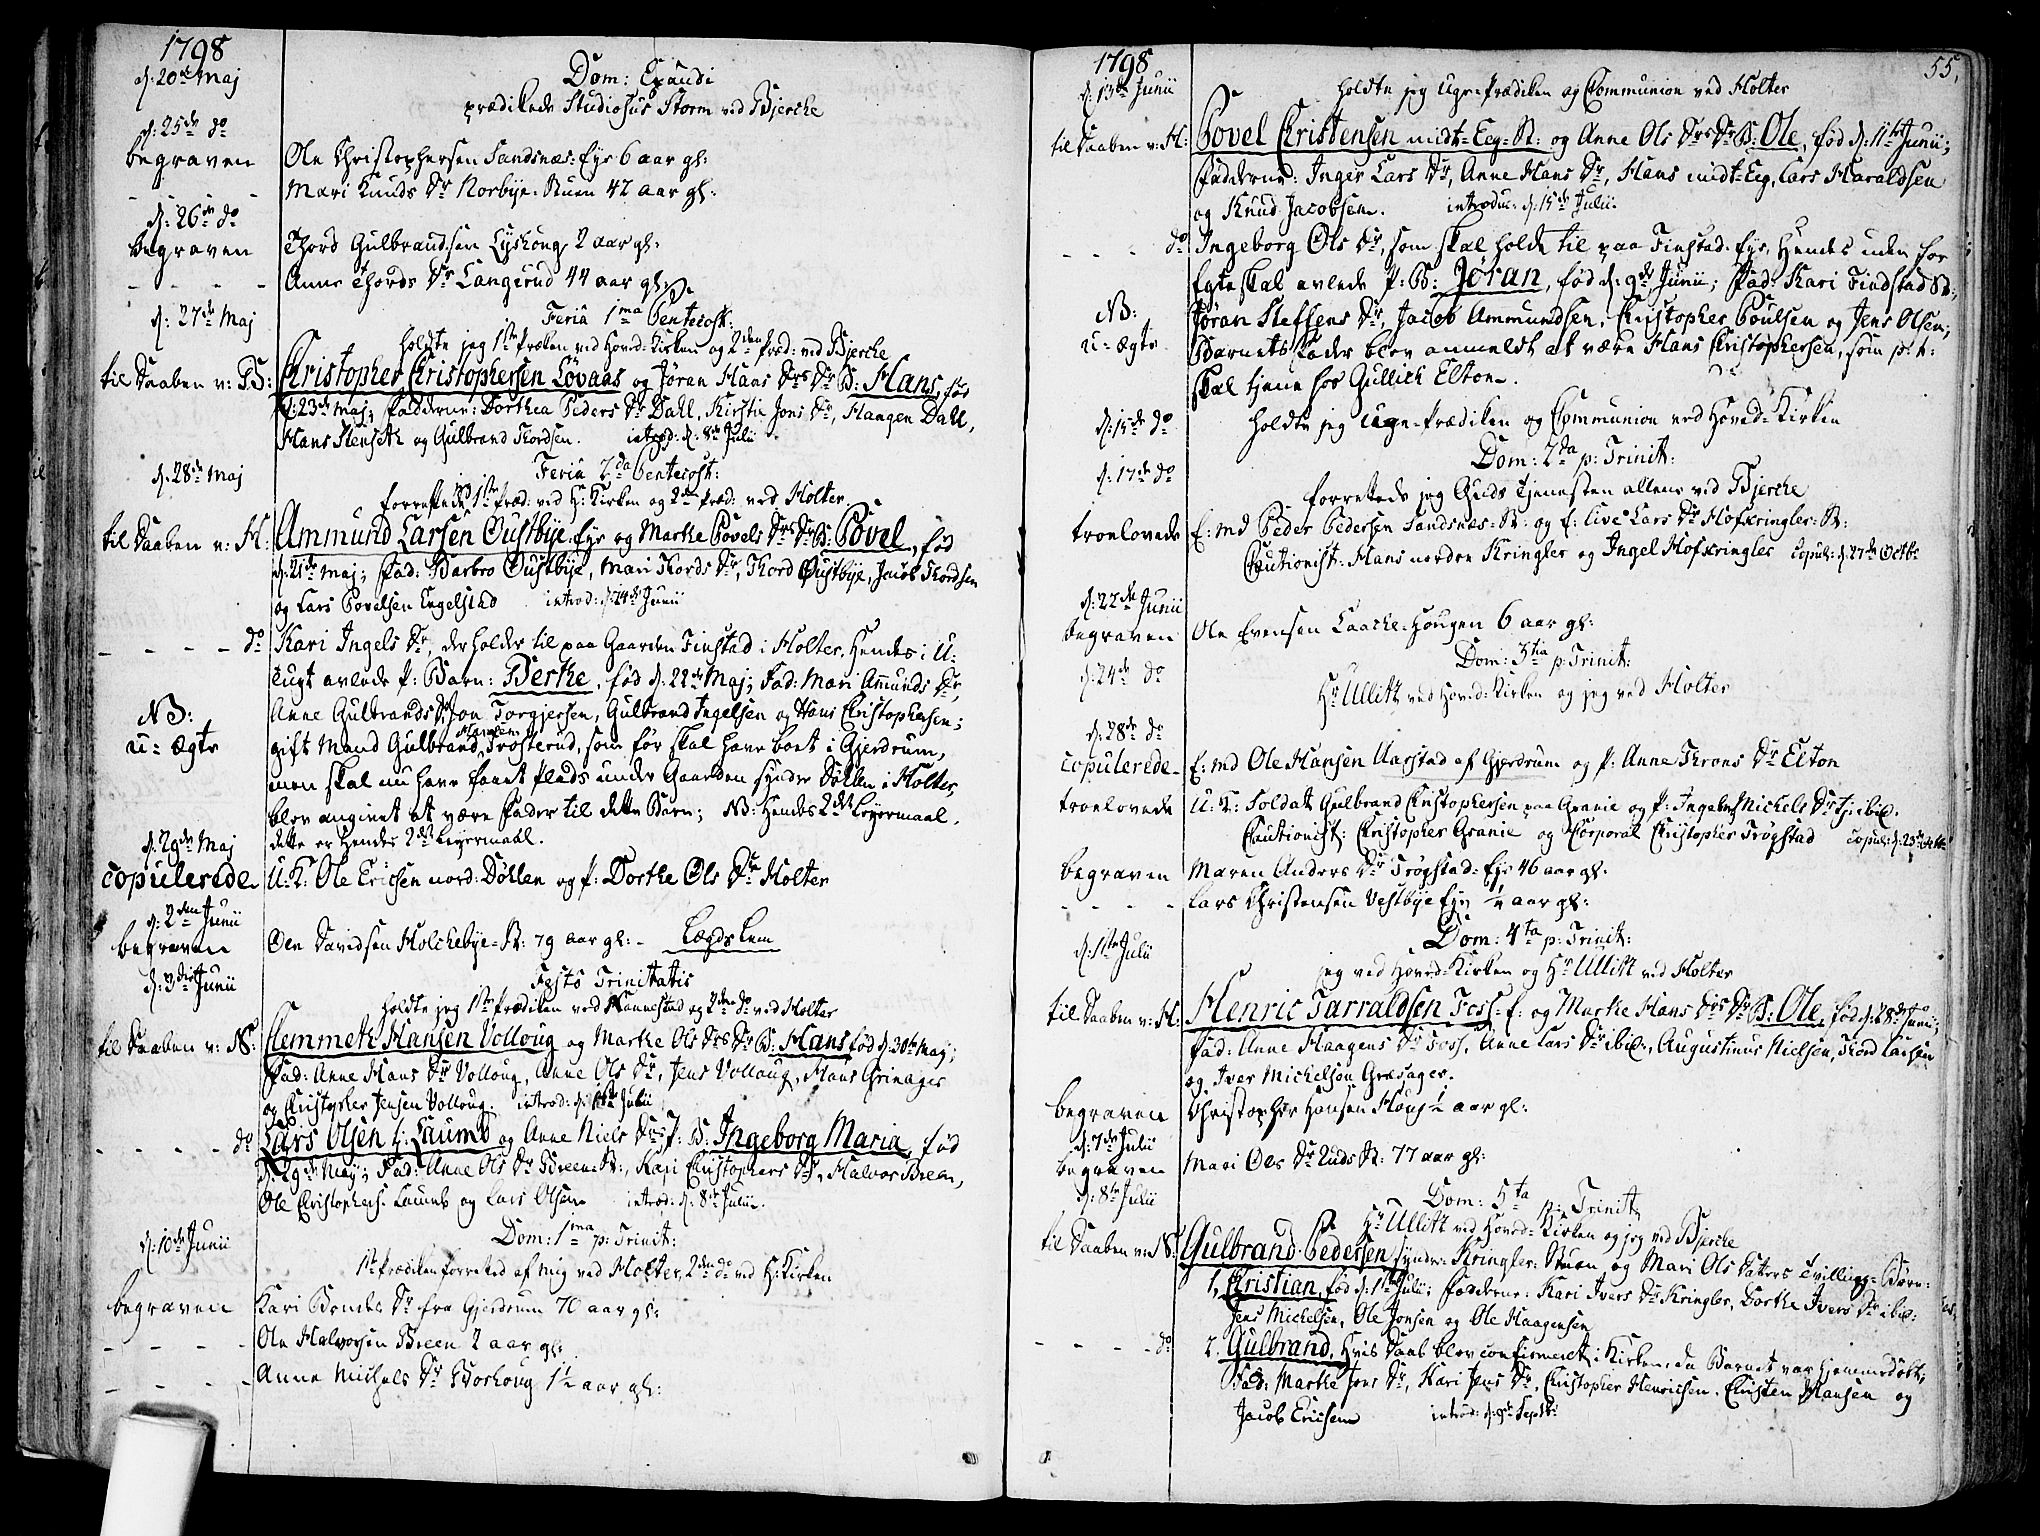 1798
d: 20de Maj
Dom: Exaudi
prædikede Studiosus Storm ved Bjerche
d: 25de do
begraven Ole Christophersen Sandsnæs-Eye 6 aar gl:
- - - Mari Knuds Dr Norbye-Stuen 42 aar gl:
d: 26de do
begraven Thord Gulbrandsen Lyshoug 2 aar gl:
- - - Anne Thords Dr Langerud 44 aar gl:
d: 27de Maj Feria 1ma Pentecost:
holdte jeg 1ste Præken ved Hoved-Kirken og 2den Præd: ved Bjerche
til Daaben v: B: Christopher Christophersen Løvaas og Jøran Hans Drs Dr B: Hans, fød
d: 23de Maj; Fadderne: Dorthea Peders Dr Dahl, Kirstie Jons Dr, Haagen Dahl,
Hans Stenseth og Gulbrand Thordsen. introd: d: 8de Julii
d: 28de Maj Feria 2da Pentecost:
forrettede jeg 1ste Præd: ved H: Kirken og 2den Præd: ved Holter
til Daaben v: H: Ammund Larsen Oustbye-Eye og Marthe Povels Drs Dr B: Povel, fød
d: 21de Maj; Fad: Barbro Oustbye, Mari Thords Dr, Thord Oustbye, Jacob Thordsen
og Lars Povelsen Engelstad introd: d: 24de Junii
- - - do Kari Ingels Dr, der holder til paa Gaarden Finstad i Holter, Hendes i U-
tugt avlede P: Barn: Berthe, fød d: 22de Maj; Fad: Mari Amunds Dr
NB: Anne Gulbrands Dr, Jon Torgjersen, Gulbrand Ingelsen og Hans Christophersen;
u-ægte gift Mand Gulbrand Trøsterud, som før skal have boet i Gjerdrum,
men skal nu have faaet Plads under Gaarden syndre Døhlen i Holter,
blev angivet at være Fader til dette Barn; NB: Hendes 2det Leyermaal.
dette er Hendes 2det Leyermaal.
d: 29de Maj
copulerede U: K: Ole Ericsen nord: Døhlen og P: Dorthe Ols Dr Holter
d: 2den Junii
begraven Ole Davidsen Holchebye-St: 79 aar gl: - Lægds Lem
d: 3die Junii Festo Trinitatis
holdte jeg 1ste Prædiken ved Nannestad og 2den do ved Holter
til Daaben v: N: Clemmeth Hansen Volloug og Marthe Ols Drs Dr B: Hans fød d: 30te Maj;
Fad: Anne Hans Dr Volloug, Anne Ols Dr, Jens Volloug, Hans Grinager
og Christopher Jensen Volloug. introd: d: Julii
- - - do Lars Olsen Laumb og Anne Niels Drs P: B: Ingeborg Maria, fød
d: 29de May; Fad: Anne Ols Dr Breen-St:, Kari Christophers Dr, Halvor Breen,
Ole Christophers: Laumb og Lars Olsen introd: d: 8de Julii.
d: 10de Junii Dom: 1ma p: Trinit:
1ste Prædiken forretted af mig ved Holter, 2den do ved H: Kirken
begraven Kari Bendes Dr fra Gjerdrum 70 aar gl:
- - - Ole Halvorsen Breen 2 aar gl:
- - - Anne Michels Dr Borhoug 1½ aar gl:
1798 55.
d: 13de Junii holdte jeg Uge-Prædiken og Communion ved Holter
til Daaben v: H: Povel Christensen midt-Eeg-St: og Anne Ols Drs Dr B: Ole, fød d: 11te Junii;
Fadderne: Inger Lars Dr, Anne Hans Dr, Hans midt-Eeg, Lars Haraldsen
og Knud Jacobsen. introduc: d: 15de Julii.
- - - do Ingeborg Ols Dr, som skal holde til paa Finstad-Eye, Hendes uden for
Egteskab avlede P: B: Jøran, fød d: 9de Junii; Fad: Kari Findstad St:,
NB: Jøran Steffens Dr, Jacob Ammundsen, Christopher Poulsen og Jens Olsen;
u-ægte Barnets Fader blev anmeldt at være Hans Christophersen, som p: t:
skal tjene hos Gullich Elton.
d: 15de do holdte jeg Uge-Prædiken og Communion ved Hoved-Kirken
d: 17de do Dom: 2da p: Trinit:
forrettede jeg Guds Tjenesten allene ved Bjerche
troelovede E: md Peder Pedersen Sandsnæs-St: og E: Live Lars Dr Hofkringler-St:
Cautionist: Hans norden Kringler og Ingel Hofkringler copul: d: 27de Octbr
d: 22de Junii
begraven Ole Evensen Laache-Hougen 6 aar gl:
d: 24de do Dom: 3tia p: Trinit:
Hr Ullitz ved Hoved-Kirken og jeg ved Holter
d: 28de do
copulerede E: md Ole Hansen Aarstad af Gjerdrum og P: Anne Throns Dr Elton
troelovede U: K: Soldat Gulbrand Christophersen paa Granie og P: Ingeb: Michels Dr tj: ibid:
Cautionist: Christopher Granie og Corporal Christopher Trøgstad copul: d: 25
begraven Maren Anders Dr Trøgstad-Eye 46 aar gl:
- - - Lars Christensen Vestbye Eye ½ aar gl:
d: 1ste Julii Dom: 4ta p: Trinit:
jeg ved Hoved-Kirken og Hr Ullitz ved Holter
til Daaben v: H: Henric Tarraldsen Foss-E: og Marthe Hans Drs Dr B: Ole, fød d: 28de Junii;
Fad: Anne Haagens Dr Foss, Anne Lars Dr ibid:, Augustinus Nielsen, Thord Larsen
og Iver Michelsen Græsager.
begraven Christopher Hansen Houg ½ aar gl:
d: 7de Julii
begraven Mari Ols Dr Luds St: 77 aar gl:
d: 8de Julii Dom: 5ta p: Trinit:
Hr Ullitz ved Hoved-Kirken og jeg ved Bjerche
til Daaben v: N: Gulbrand Pedersen syndre-Kringler-Stuen og Mari Ols Datters Tvillinge-Børn:
1, Christian, fød d: 1ste Julii; Fadderne: Kari Ivers Dr Kringler, Dorthe Ivers Dr ibid:
Jens Michelsen, Ole Jonsen og Ole Haagensen
- - - do 2, Gulbrand, Hvis Daab blev confirmeret i Kirken, da Barnet var hjemmedøbt;
Fad: Marthe Jens Dr, Kari Jens Dr, Christopher Henricsen, Christen Hansen og
Jacob Ericsen introd: d: 9de Septbr: